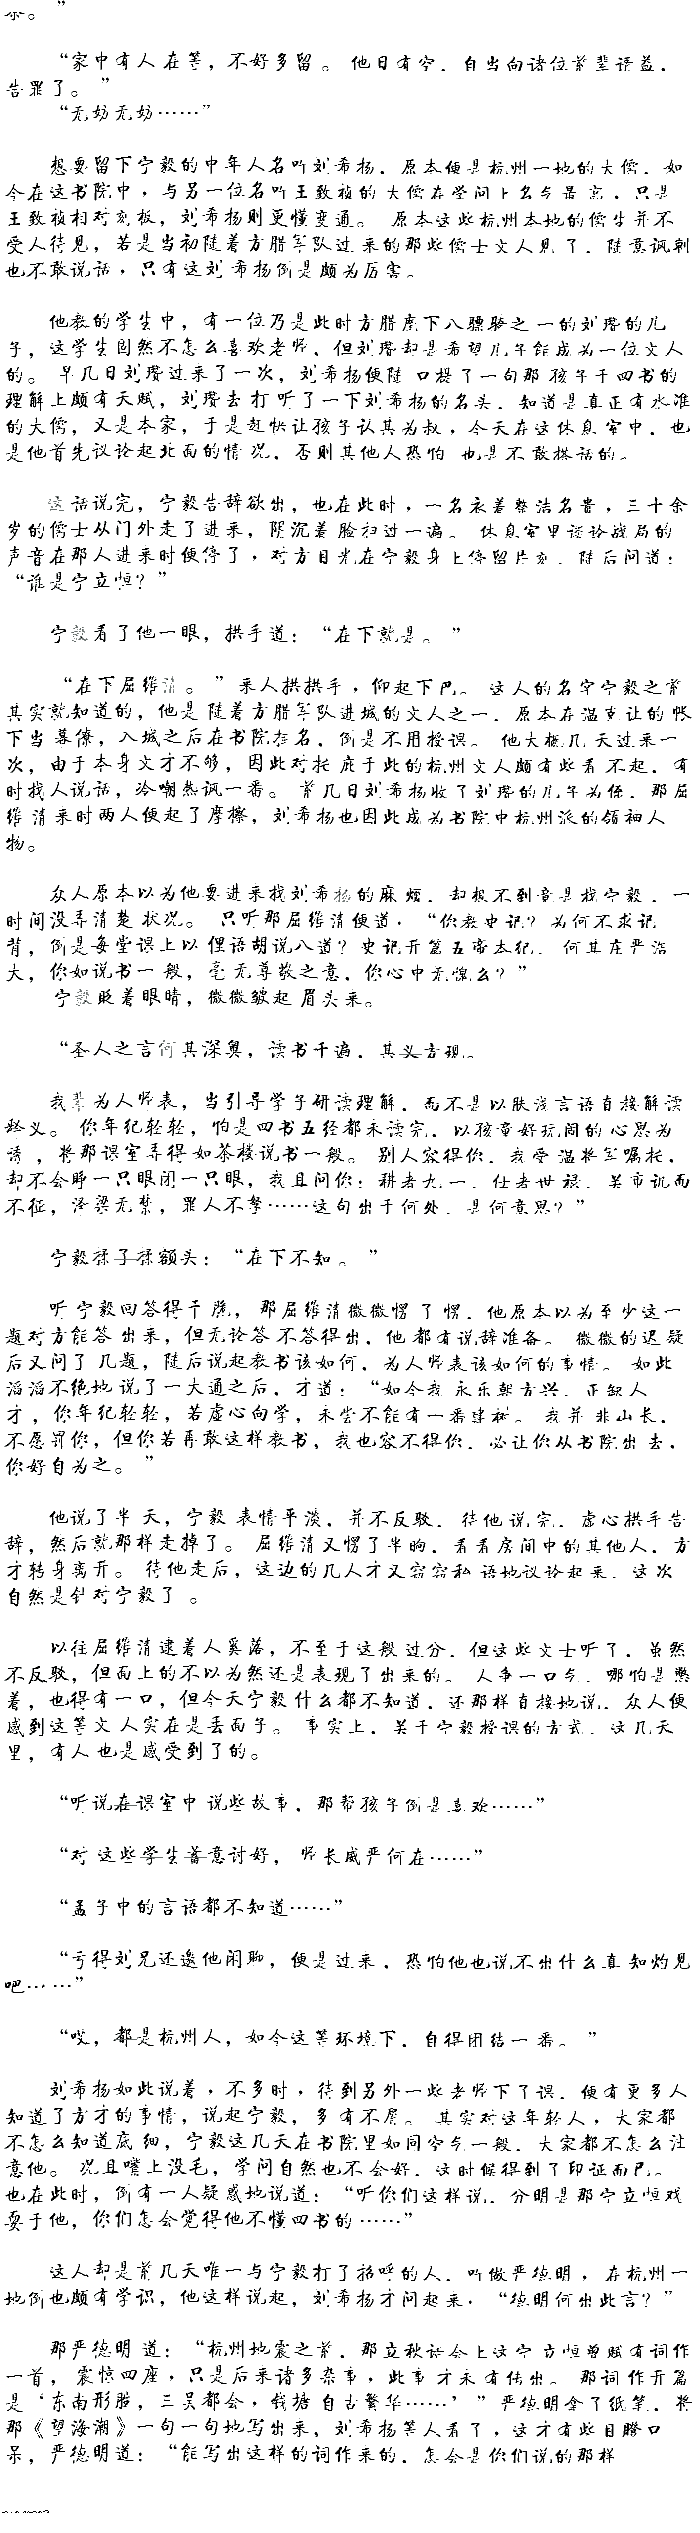 茶。”
“家中有人在等，不好多留。他日有空，自当向诸位前辈请益，
告罪了。”
“无妨无妨……”
想要留下宁毅的中年人名叫刘希扬，原本便是杭州一地的大儒，如
今在这书院中，与另一位名叫王致祯的大儒在学问上名气最高，只是
王致祯相对刻板，刘希扬则更懂变通。原本这些杭州本地的儒生并不
受人待见，若是当初随着方腊军队过来的那些儒士文人见了，随意讽刺
也不敢说话，只有这刘希扬倒是颇为厉害。
他教的学生中，有一位乃是此时方腊麾下八骠骑之一的刘瓒的儿
子，这学生固然不怎么喜欢老师，但刘瓒却是希望儿子能成为一位文人
的。早几日刘瓒过来了一次，刘希扬便随口提了一句那孩子于四书的
理解上颇有天赋，刘瓒去打听了一下刘希扬的名头，知道是真正有水准
的大儒，又是本家，于是赶快让孩子认其为叔，今天在这休息室中，也
是他首先议论起北面的情况，否则其他人恐怕也是不敢搭话的。
这话说完，宁毅告辞欲出，也在此时，一名衣着整洁名贵，三十余
岁的儒士从门外走了进来，阴沉着脸扫过一遍。休息室里谈论战局的
声音在那人进来时便停了，对方目光在宁毅身上停留片刻，随后问道：
“谁是宁立恒？”
宁毅看了他一眼，拱手道：“在下就是。”
“在下屈维清。”来人拱拱手，仰起下巴。这人的名字宁毅之前
其实就知道的，他是随着方腊军队进城的文人之一，原本在温克让的帐
下当幕僚，入城之后在书院挂名，倒是不用授课。他大概几天过来一
次，由于本身文才不够，因此对托庇于此的杭州文人颇有些看不起，有
时找人说话，冷嘲热讽一番。前几日刘希扬收了刘瓒的儿子为侄，那屈
维清来时两人便起了摩擦，刘希扬也因此成为书院中杭州派的领袖人
物。
众人原本以为他要进来找刘希扬的麻烦，却料不到竟是找宁毅，一
时间没弄清楚状况。只听那屈维清便道，“你教史记？为何不求记
背，倒是每堂课上以俚语胡说八道？史记开篇五帝本纪，何其庄严浩
大，你如说书一般，毫无尊敬之意，你心中无愧么？”
宁毅眨着眼睛，微微皱起眉头来。
“圣人之言何其深奥，读书千遍，其义方现。
我辈为人师表，当引导学子研读理解，而不是以肤浅言语直接解读
释义。你年纪轻轻，怕是四书五经都未读完，以孩童好玩闹的心思为
诱，将那课室弄得如茶楼说书一般。别人容得你，我受温将军嘱托，
却不会睁一只眼闭一只眼，我且问你：耕者九一，仕者世禄，关市讥而
不征，泽梁无禁，罪人不孥……这句出于何处，是何意思？”
宁毅揉了揉额头：“在下不知。”
听宁毅回答得干脆，那屈维清微微愣了愣，他原本以为至少这一
题对方能答出来，但无论答不答得出，他都有说辞准备。微微的迟疑
后又问了几题，随后说起教书该如何，为人师表该如何的事情。如此
滔滔不绝地说了一大通之后，才道：“如今我永乐朝方兴，正缺人
才，你年纪轻轻，若虚心向学，未尝不能有一番建树。我并非山长，
不愿罚你，但你若再敢这样教书，我也容不得你，必让你从书院出去，
你好自为之。”
他说了半天，宁毅表情平淡，并不反驳，待他说完，虚心拱手告
辞，然后就那样走掉了。屈维清又愣了半晌，看看房间中的其他人，方
才转身离开。待他走后，这边的几人才又窃窃私语地议论起来，这次
自然是针对宁毅了。
以往屈维清逮着人奚落，不至于这般过分，但这些文士听了，虽然
不反驳，但面上的不以为然还是表现了出来的。人争一口气，哪怕是憋
着，也得有一口，但今天宁毅什么都不知道，还那样直接地说，众人便
感到这等文人实在是丢面子。事实上，关于宁毅授课的方式，这几天
里，有人也是感受到了的。
“听说在课室中说些故事，那帮孩子倒是喜欢……”
“对这些学生蓄意讨好，师长威严何在……”
“孟子中的言语都不知道……”
“亏得刘兄还邀他闲聊，便是过来，恐怕他也说不出什么真知灼见
吧……”
“哎，都是杭州人，如今这等环境下，自得团结一番。”
刘希扬如此说着，不多时，待到另外一些老师下了课，便有更多人
知道了方才的事情，说起宁毅，多有不屑。其实对这年轻人，大家都
不怎么知道底细，宁毅这几天在书院里如同空气一般，大家都不怎么注
意他。况且嘴上没毛，学问自然也不会好，这时候得到了印证而已。
也在此时，倒有一人疑惑地说道：“听你们这样说，分明是那宁立恒戏
耍于他，你们怎会觉得他不懂四书的……”
这人却是前几天唯一与宁毅打了招呼的人，叫做严德明，在杭州一
地倒也颇有学识，他这样说起，刘希扬才问起来，“德明何出此言？”
那严德明道：“杭州地震之前，那立秋诗会上这宁立恒曾赋有词作
一首，震惊四座，只是后来诸多杂事，此事才未有传出。那词作开篇
是‘东南形胜，三吴都会，钱塘自古繁华……’”严德明拿了纸笔，将
那《望海潮》一句一句地写出来，刘希扬等人看了，这才有些目瞪口
呆，严德明道：“能写出这样的词作来的，怎会是你们说的那样